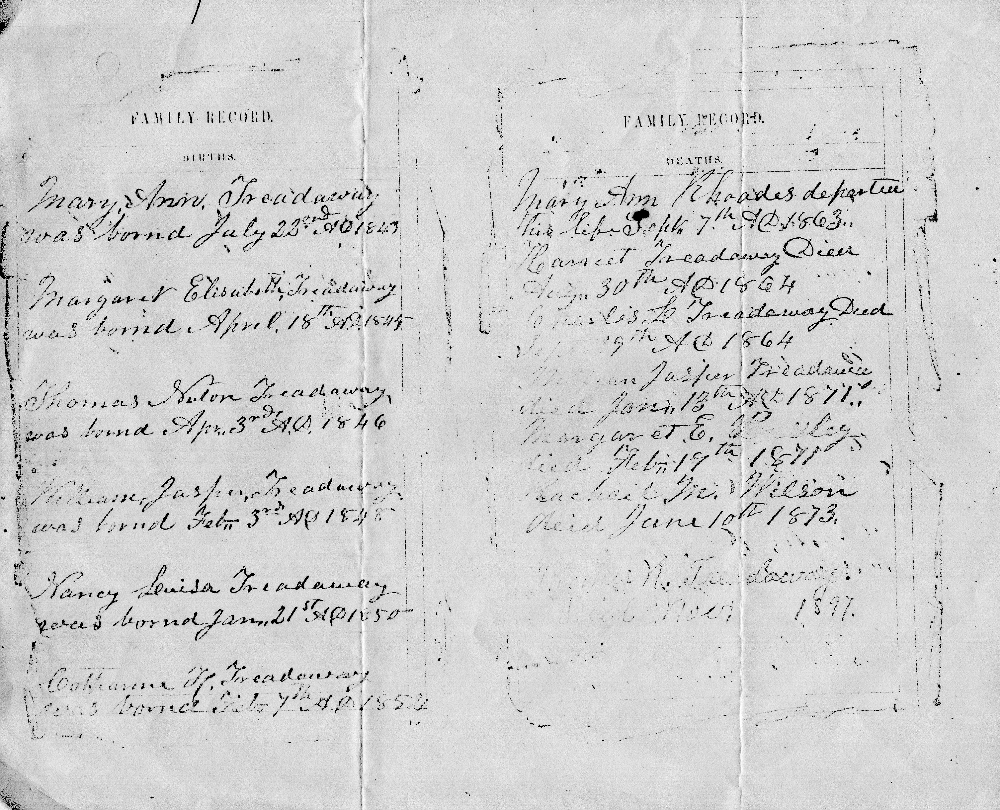 FAMILY RECORD.
BIRTHS.
Mary Ann Treadaway
was bornd July 22nd AD 1843
Margaret Elisabeth Treadaway
was bornd April 18th AD 1845
Thomas Nuton Treadaway
was bornd Apr. 3rd A.D. 1846
William Jasper Treadaway
was bornd Feb 3rd AD 1848
Nancy Luisa Treadaway
was bornd Jan. 21st AD 1850
Catharine H. Treadaway
was bornd Feb 7th AD 1852
FAMILY RECORD.
DEATHS.
Mary Ann Rhoades departed
this life Sept 7th AD 1863.
Harriet Treadaway Died
30th AD 1864
Charles L Treadaway Died
Sept 9th AD 1864
William Jasper Treadaway
died Jan. 13th AD 1871.
Margaret E.
died Feb. 17th 1871
Rachell M. Wilson
died June 10th 1873.
N. Treadaway
1897.